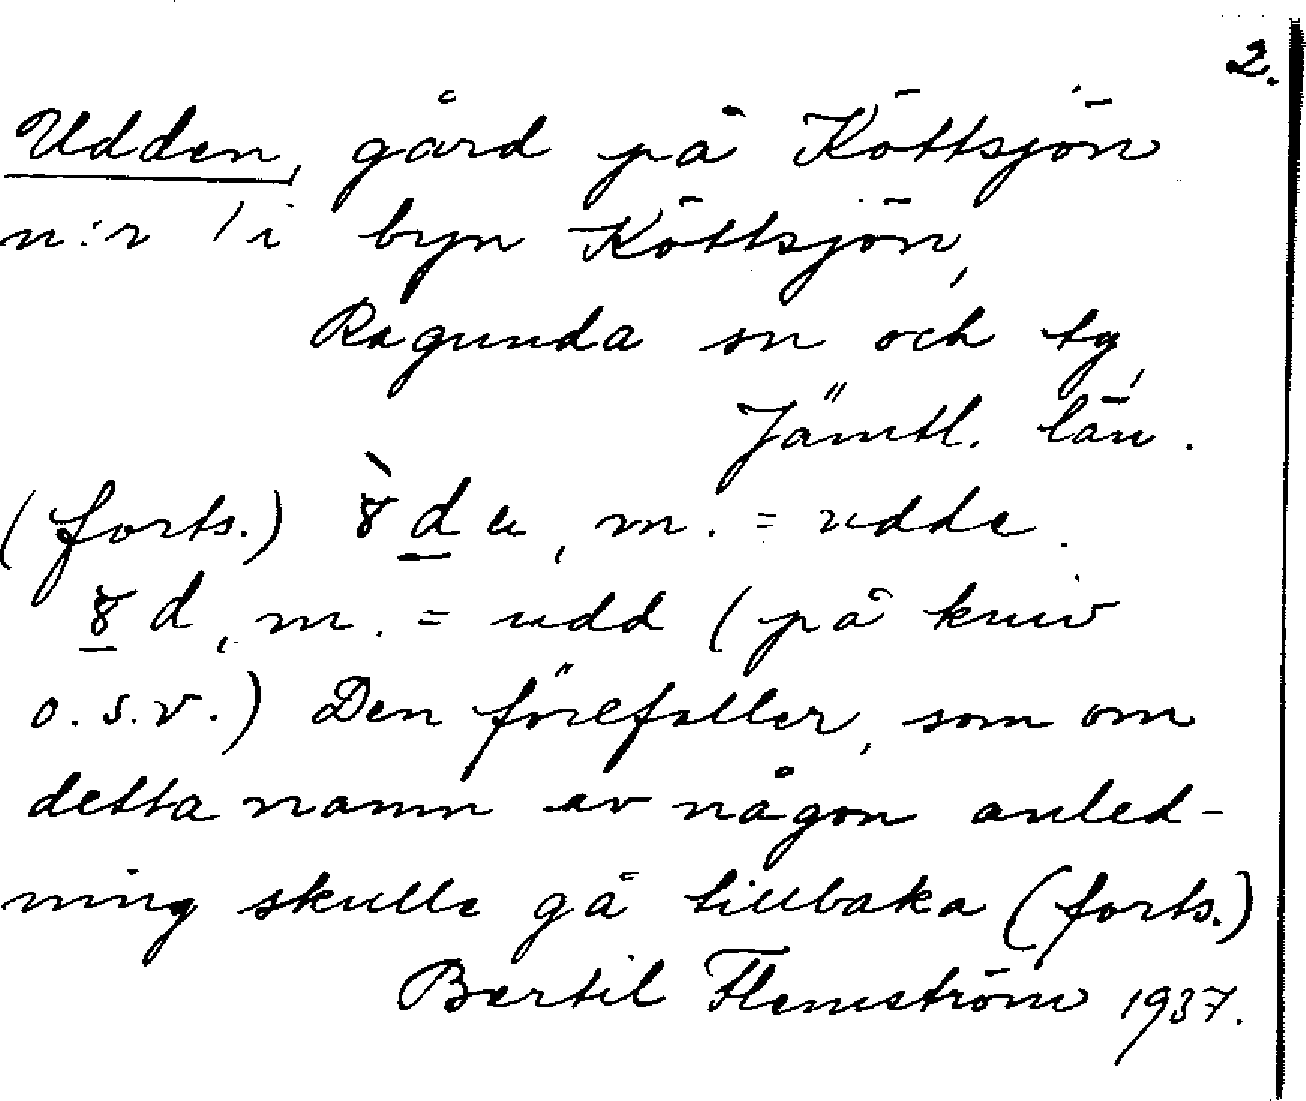 2.
Udden, gård på Köttsjön
n:r 1 i byn Köttsjön,
Ragunda sn och tg,
Jämtl. län.
(forts.) m. = udde.
m. = udd (på kniv
o.s.v.) Den förefaller, som om
detta namn av någon anled-
ning skulle gå tillbaka (forts.)
Bertil Flemström 1937.